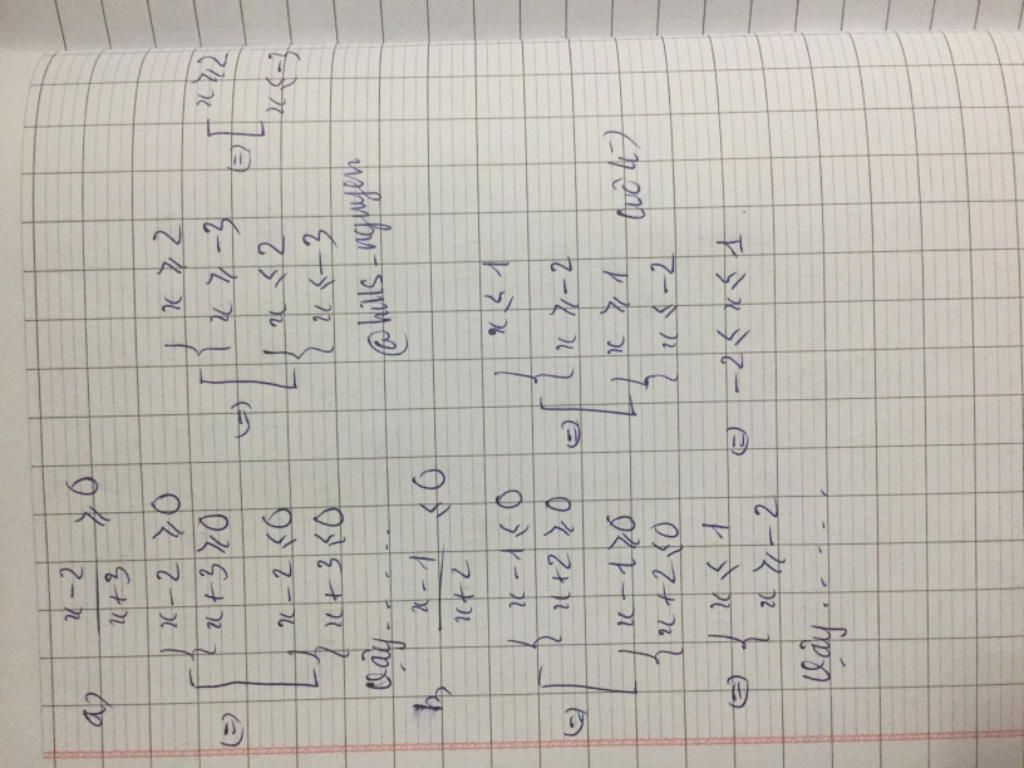 a) (x-2)/(x+3) ≥ 0
(=) [ { x-2 ≥ 0
x+3 ≥ 0
{ x-2 ≤ 0
x+3 ≤ 0
(=) [ { x ≥ 2
x ≥ -3
{ x ≤ 2
x ≤ -3
(=) [ x ≥ 2
x ≤ -3
Vậy.......
@hills-nguyen
b) (x-1)/(x+2) ≤ 0
(=) [ { x-1 ≤ 0
x+2 ≥ 0
{ x-1 ≥ 0
x+2 ≤ 0
(=) [ { x ≤ 1
x ≥ -2
{ x ≥ 1
x ≤ -2 (vô lí)
(=) { x ≤ 1
x ≥ -2
(=) -2 ≤ x ≤ 1
Vậy......